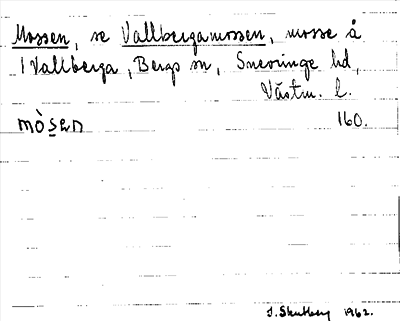 Mossen, se Vallbergamossen, mosse å
1 Vallberga, Bergs sn, Snevringe hd,
Västm. l.
mòsən 160.
1962.